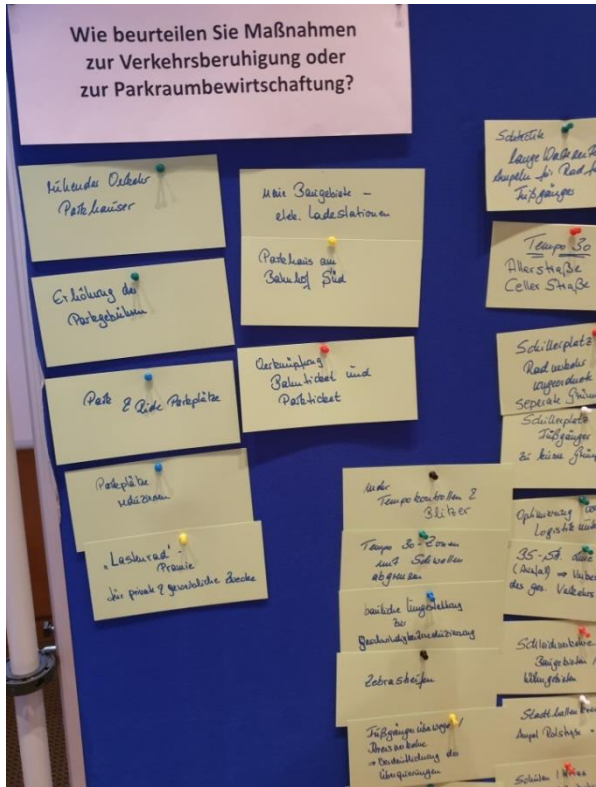 Wie beurteilen Sie Maßnahmen
zur Verkehrsberuhigung oder
zur Parkraumbewirtschaftung?
ruhender Verkehr
Parkhäuser
Erhöhung der
Parkgebühren
Park & Ride Parkplätze
Parkplätze
reduzieren
"Lastenrad" -
Prämie
für private & gewerbliche Zwecke
Neue Baugebiete –
elek. Ladestationen
Parkhaus am
Bahnhof Süd
Verknüpfung
Bahnticket und
Parkticket
mehr
Tempokontrollen &
Blitzer
Tempo 30-Zonen
mit Schwellen
abgrenzen
bauliche Umgestaltung
zur
Geschwindigkeitsreduzierung
Zebrastreifen
Fußgängerüberwege /
→ Verdeutlichung der
Überquerungen
Schlechte
lange Wartezeiten
Ampeln für Rad
Fußgänger
Tempo 30
Allerstraße
Celler Straße
Schillerplatz
Radverkehr
separate
Schillerplatz
Fußgänger
zu kurze
Optimierung
Logistik
des ges. Verkehrs
Schleichverkehr
Baugebieten /
Wohngebieten
Stadthallen
Ampel
Schulen /